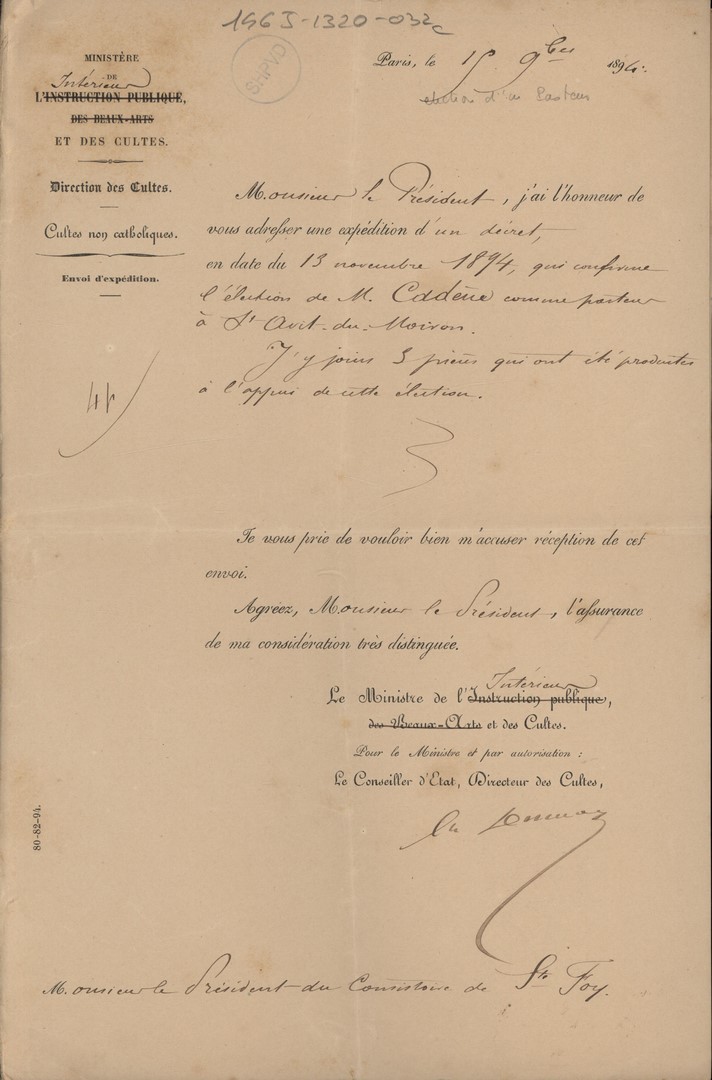 196J-1320-032c
SHPVD
MINISTÈRE
DE
Intérieur
L'INSTRUCTION PUBLIQUE,
DES BEAUX-ARTS
ET DES CULTES.
Direction des Cultes.
Cultes non catholiques.
Envoi d'expédition.
Paris, le 15 9bre 1894.
élection d'un Pasteur
Monsieur le Président, j'ai l'honneur de
vous adresser une expédition d'un décret,
en date du 13 novembre 1894, qui confirme
l'élection de M. Cadène comme pasteur
à St Avit-du-Moiron.
J'y joins 3 pièces qui ont été produites
à l'appui de cette élection.
Je vous prie de vouloir bien m'accuser réception de cet
envoi.
Agréez, Monsieur le Président, l'assurance
de ma considération très distinguée.
Intérieur
Le Ministre de l'Instruction publique,
des Beaux-Arts et des Cultes.
Pour le Ministre et par autorisation :
Le Conseiller d'État, Directeur des Cultes,
80-82-94.
Monsieur le Président du Consistoire de Ste Foy.